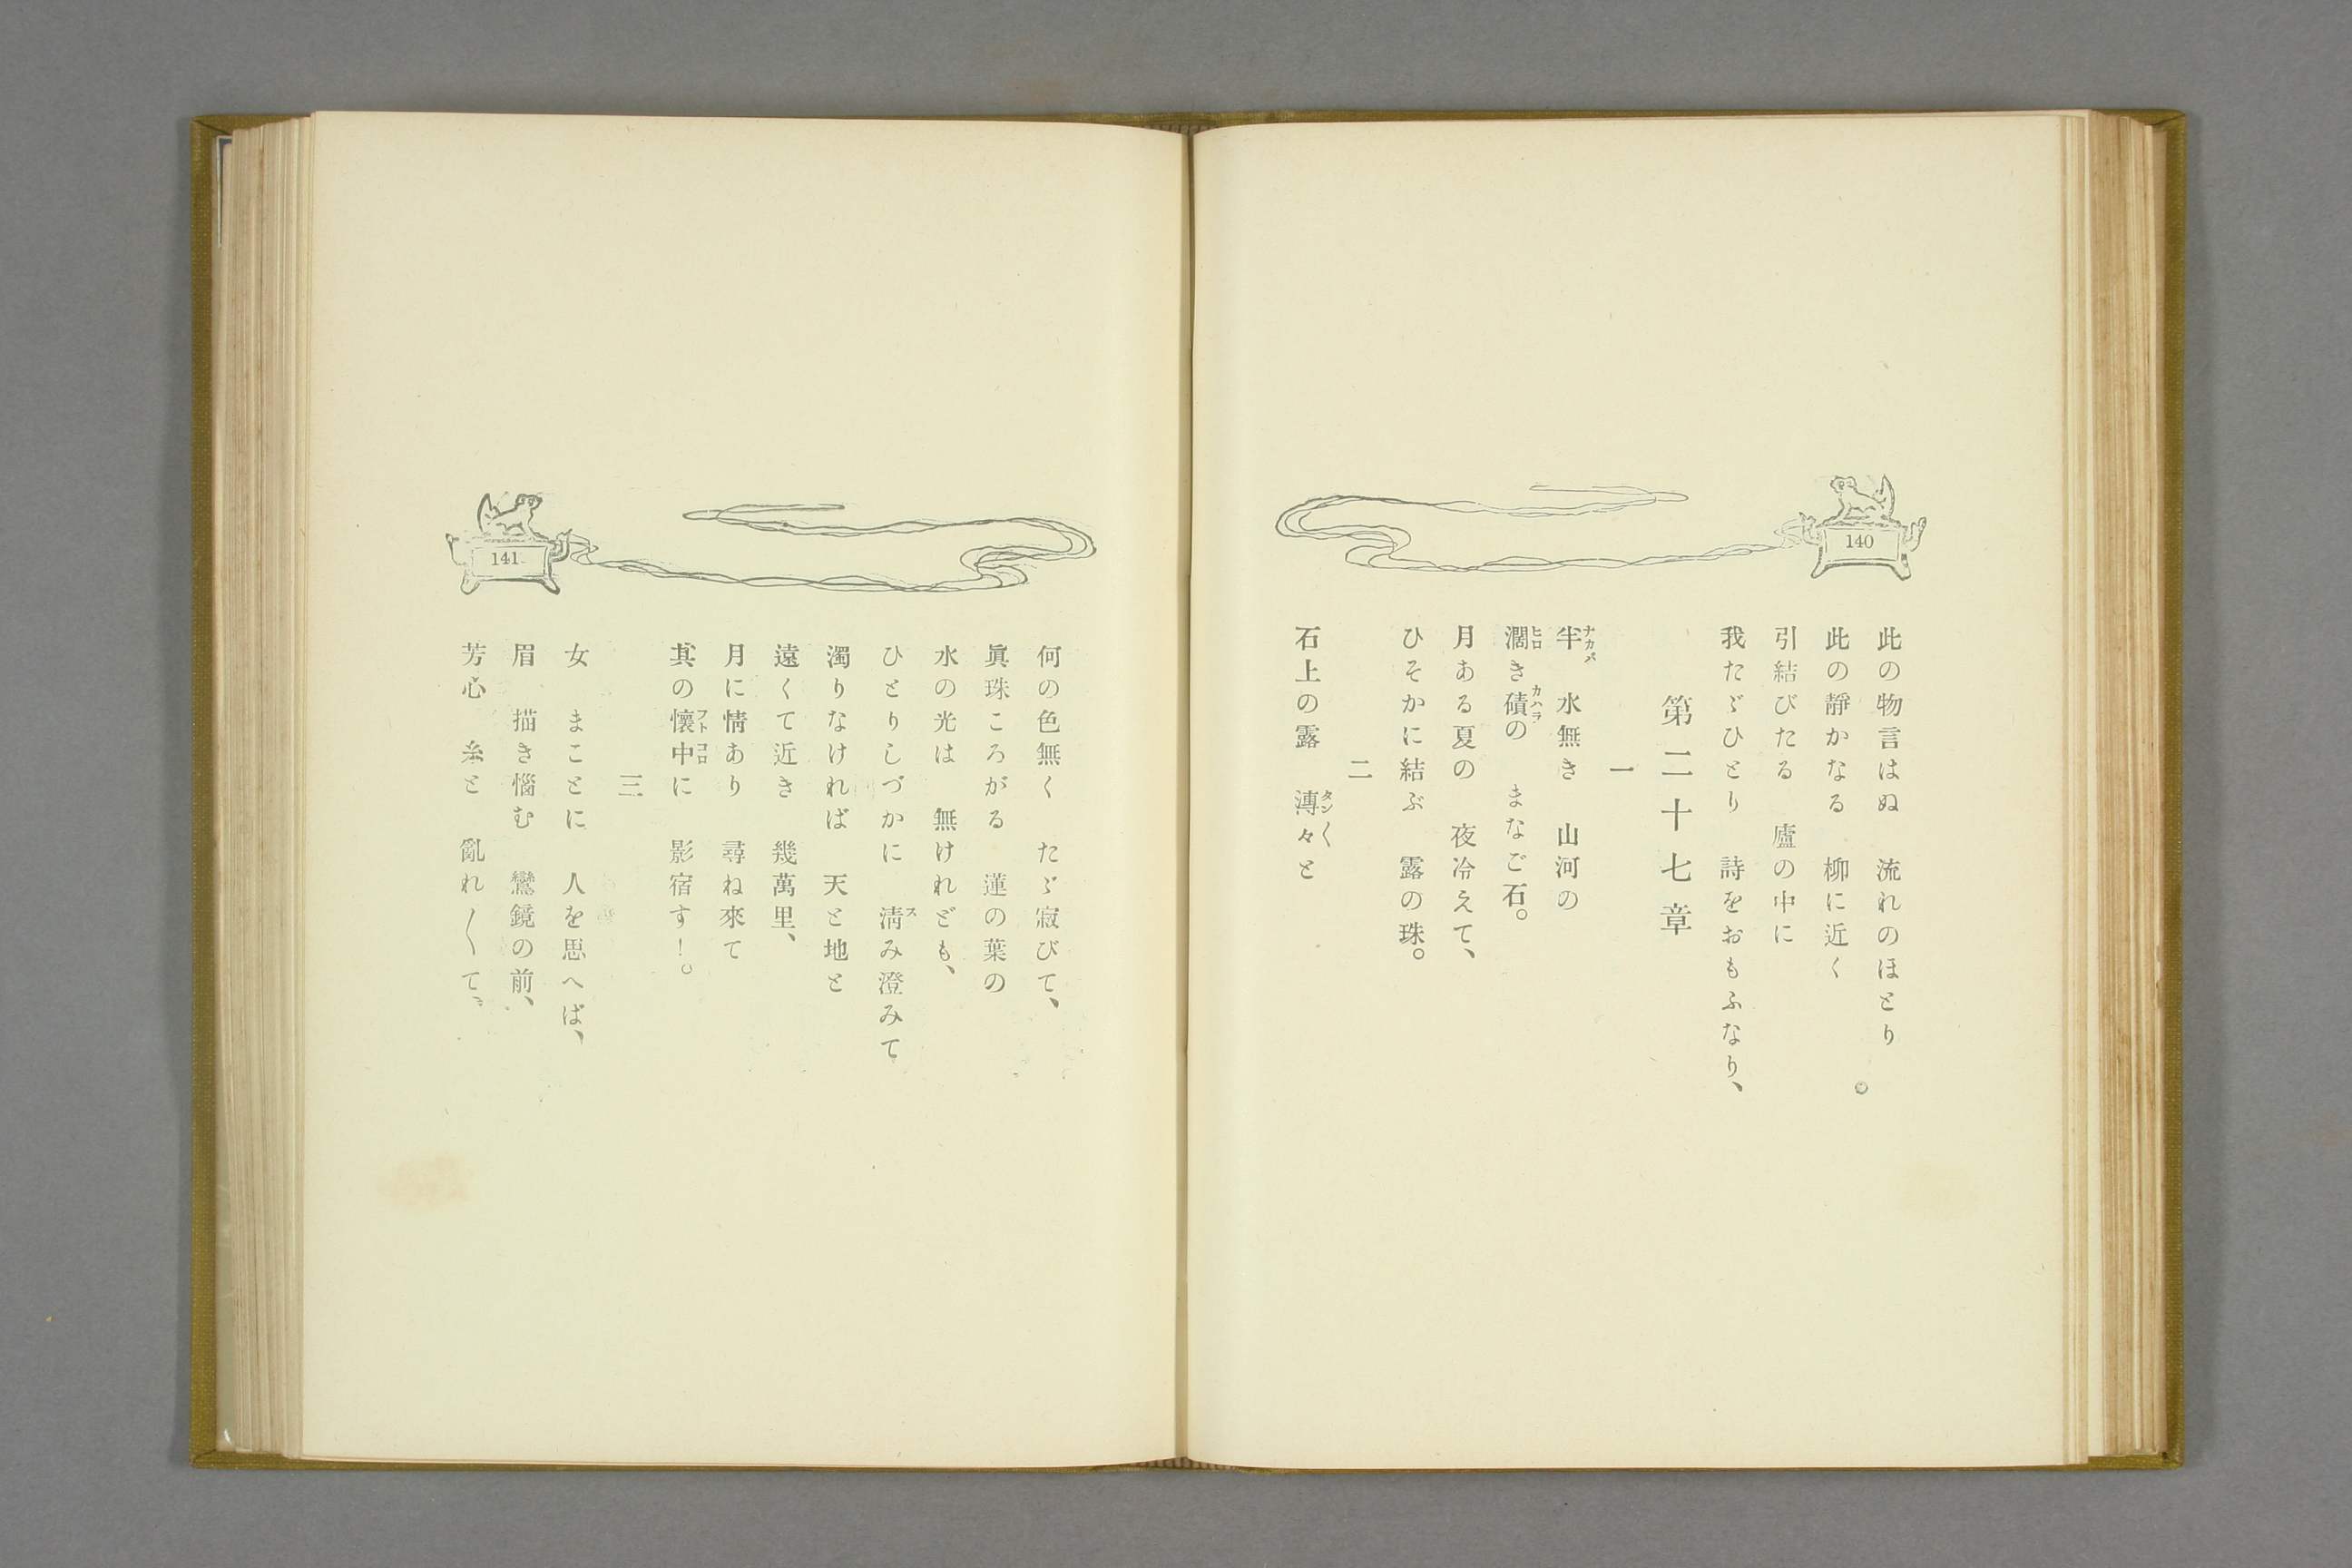 140
此の物言はぬ　流れのほとり
此の靜かなる　柳に近く
引結びたる　廬の中に
我たゞひとり　詩をおもふなり、
第二十七章
一
半　水無き　山河の
濶き磧の　まなご石。
月ある夏の　夜冷えて、
ひそかに結ぶ　露の珠。
二
石上の露　漙々と
141
何の色無く　たゞ寂びて、
眞珠ころがる　蓮の葉の
水の光は　無けれども、
ひとりしづかに　淸み澄みて
濁りなければ　天と地と
遠くて近き　幾萬里、
月に情あり　尋ね來て
其の懷中に　影宿す!。
三
女　まことに　人を思へば、
眉　描き惱む　鸞鏡の前、
芳心　糸と　亂れ〱て、